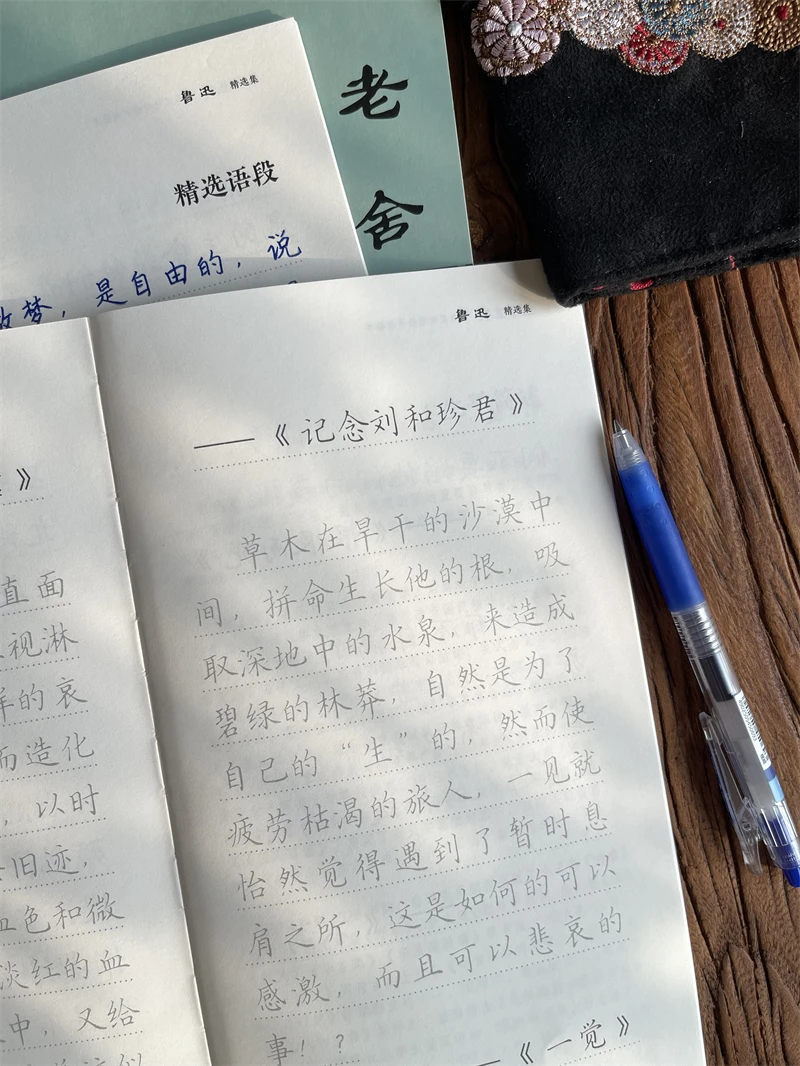 老舍
鲁迅 精选集
精选语段
梦，是自由的，说
鲁迅 精选集
》
直面
视淋
的哀
而造化
，以时
旧迹，
血色和微
淡红的血
中，又给
——《记念刘和珍君》
草木在旱干的沙漠中
间，拼命生长他的根，吸
取深地中的水泉，来造成
碧绿的林莽，自然是为了
自己的“生”的，然而使
疲劳枯渴的旅人，一见就
怡然觉得遇到了暂时息
肩之所，这是如何的可以
感激，而且可以悲哀的
事！？
——《一觉》